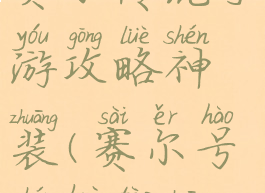 yóu gōng lüè shén
游攻略神
zhuāng sài ěr hào
装(赛尔号